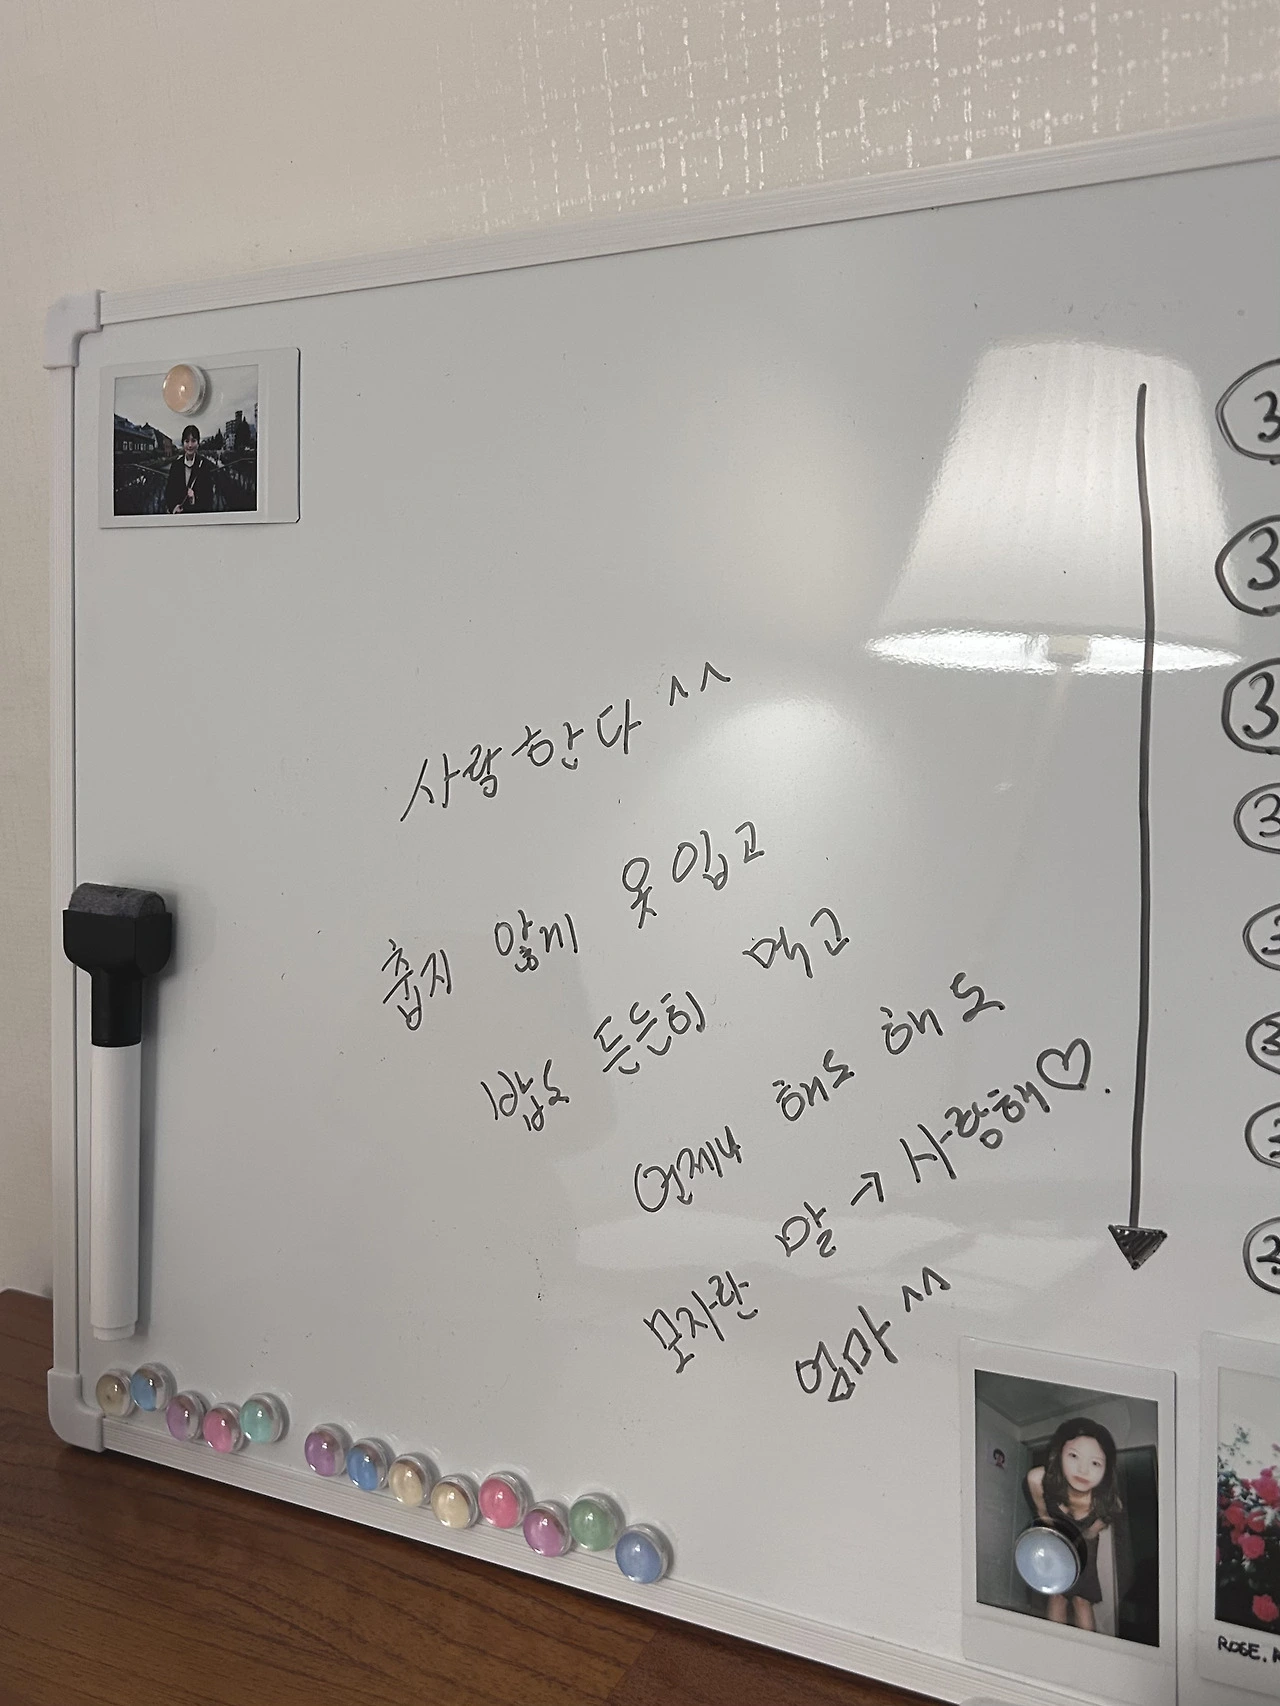 사랑한다 ^^
춥지 않게 옷 입고
밥도 든든히 먹고
언제나 해도 해도
모자란 말 → 사랑해♡.
엄마 ^^
③
③
③
③
ROSE.